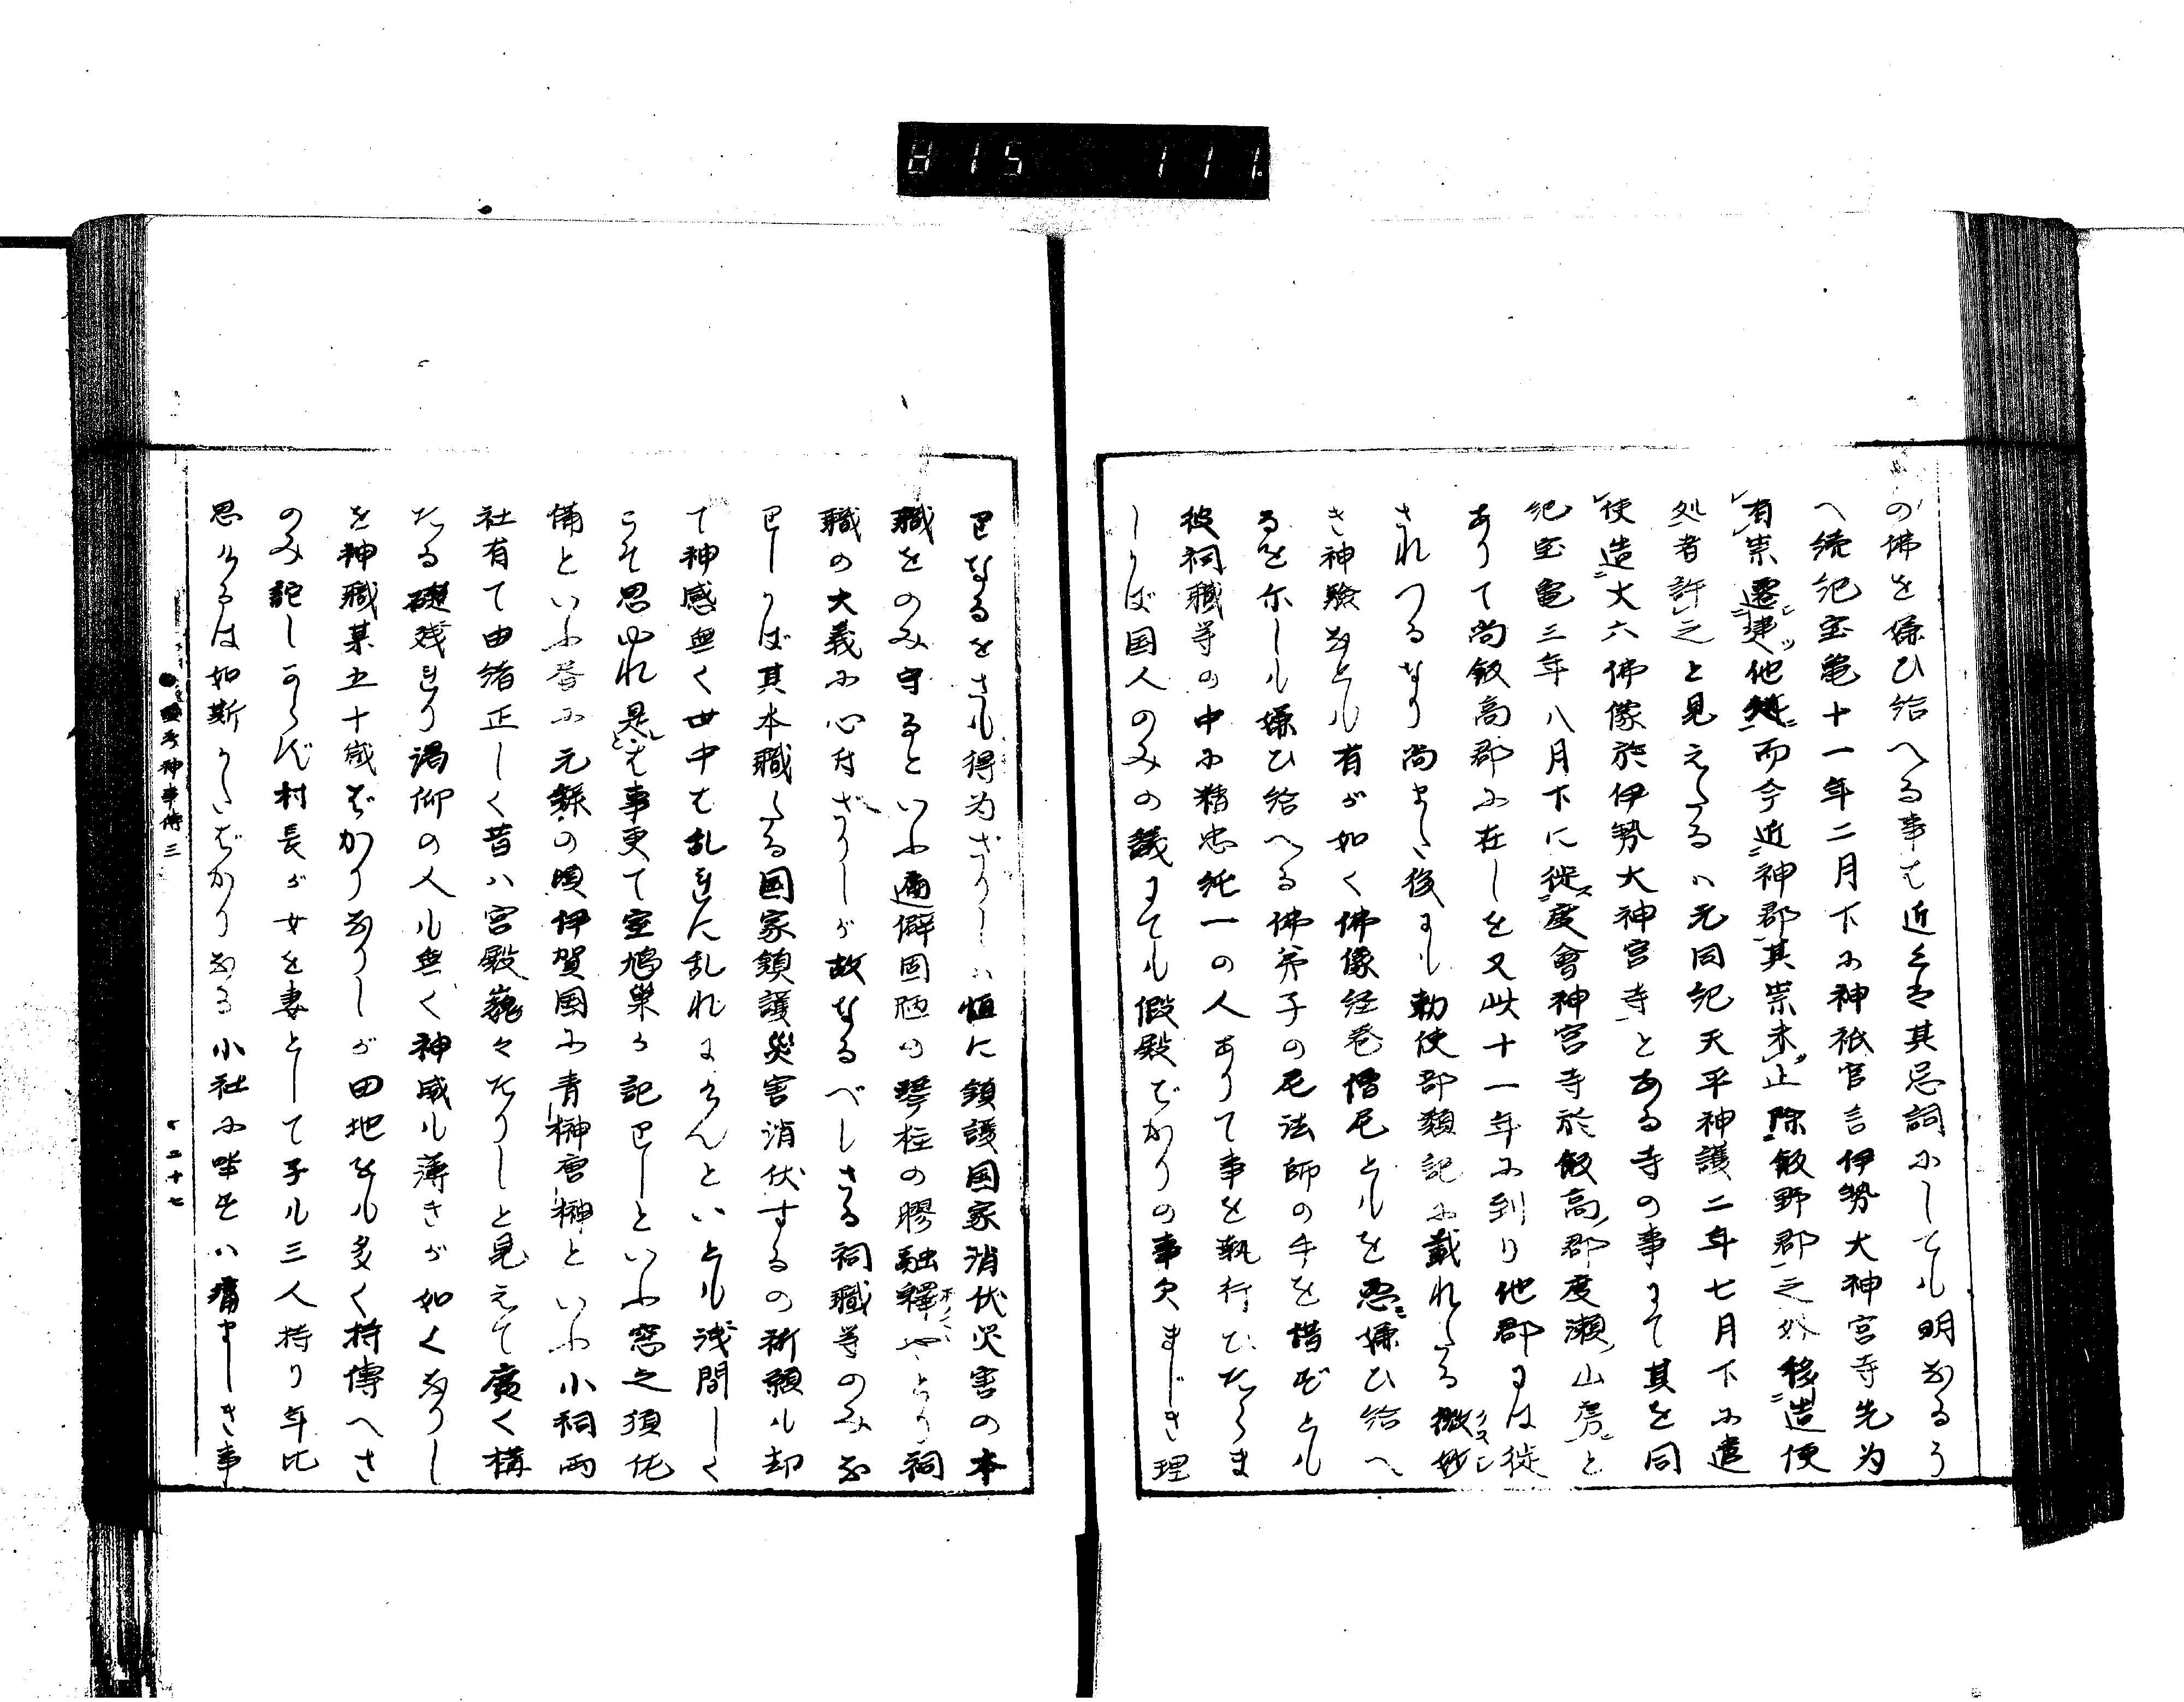 815 111.
の佛を嫌ひ給へる事も近くは其忌詞にしても明なるう
へ続紀宝亀十一年二月下に神祇官言伊勢大神宮寺先为
有祟遷建他処而今近神郡其祟未止除飯野郡之外移造便
処者許之と見えたるハ元同紀天平神護二年七月下に遣
使造丈六佛像於伊勢大神宮寺とある寺の事にて其を同
紀宝亀三年八月下に徙度會神宮寺於飯高郡度瀬山房と
ありて尚飯高郡に在しを又此十一年に到り他郡には徙
されつるなり尚また後にも勅使部類記に載れたる微妙
き神験なとも有が如く佛像経巻僧尼ともを悪嫌ひ給へ
るを尓しも嫌ひ給へる佛弟子の尼法師の手を借ずとも
彼祠職等の中に精忠純一の人ありて事を執行ひたらま
しかば国人のみの議にても假殿ばかりの事欠まじき理
りなるをさも得为ざりしハ恒に鎮護国家消伏災害の本
職をのみ守るといふ偏僻固陋の琴柱の膠融釋やらす祠
職の大義に心付ざりしが故なるべしさる祠職等のみな
りしかば其本職たる国家鎮護災害消伏するの祈願も却
て神感無く世中も乱れに乱れにけんといとも浅間しく
こそ思ゆれ是も事更て室鳩巣の記りしといふ窓之須佐
備といふ書に元禄の頃伊賀国に青榊唐榊といふ小祠両
社有て由緒正しく昔ハ宮殿巍々たりしと見えて廣く構
たる礎残れり渇仰の人も無く神威も薄きが如くなりし
を神職某五十歳ばかりなりしが田地をも多く持傳へさ
のみ詑しからず村長が女を妻として子も三人持り年比
思けるは如斯かたばかりなる小社に畢生ハ痛ましき事
神事傳三
二十七